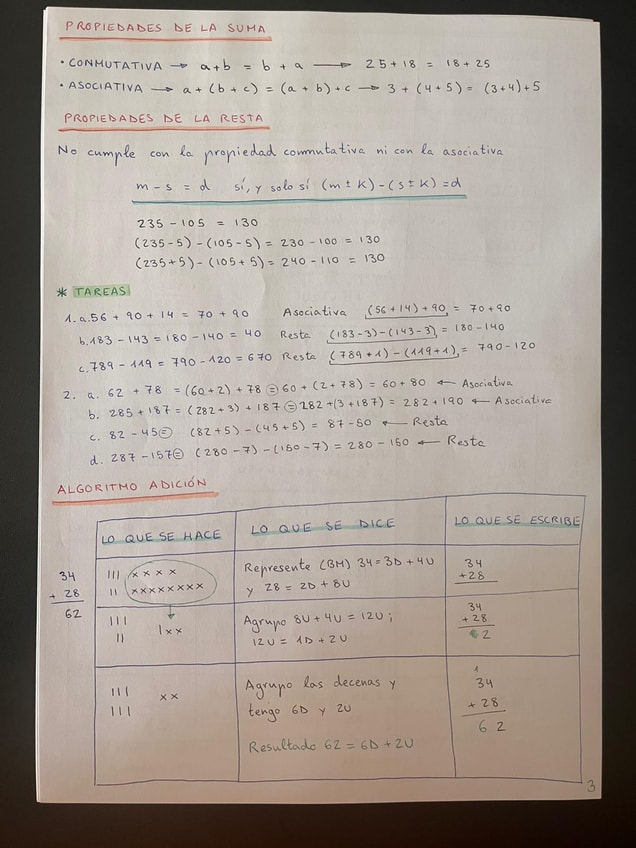 PROPIEDADES DE LA SUMA
• CONMUTATIVA → a+b = b + a → 25+18 = 18+25
• ASOCIATIVA → a + (b + c) = (a + b) + c → 3 + (4+5) = (3+4)+5
PROPIEDADES DE LA RESTA
No cumple con la propiedad conmutativa ni con la asociativa
m - s = d sí, y solo sí (m ± K) - (s ± K) = d
235 - 105 = 130
(235-5) - (105-5) = 230 - 100 = 130
(235+5) - (105+5) = 240 - 110 = 130
* TAREAS
1. a. 56 + 90 + 14 = 70 + 90 Asociativa (56+14) + 90 = 70+90
b. 183 - 143 = 180 - 140 = 40 Resta (183-3) - (143-3) = 180-140
c. 789 - 119 = 790 - 120 = 670 Resta (789+1) - (119+1) = 790-120
2. a. 62 + 78 = (60+2) + 78 = 60 + (2+78) = 60 + 80 ← Asociativa
b. 285 + 187 = (282+3) + 187 = 282 + (3+187) = 282 + 190 ← Asociativa
c. 82 - 45 = (82+5) - (45+5) = 87-50 ← Resta
d. 287 - 157 = (280-7) - (150-7) = 280 - 150 ← Resta
ALGORITMO ADICIÓN
34
+ 28
62
LO QUE SE HACE LO QUE SE DICE LO QUE SE ESCRIBE
||| x x x x
|| x x x x x x x x
Represente (BM) 34 = 3D + 4U
y 28 = 2D + 8U
34
+28
|||
||
| x x
Agrupo 8U + 4U = 12U ;
12U = 1D + 2U
34
+ 28
2
|||
|||
x x
Agrupo las decenas y
tengo 6D y 2U
Resultado 62 = 6D + 2U
1
34
+ 28
6 2
3